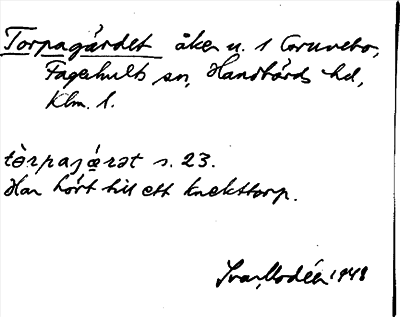 Torpagärdet åker u. 1 Gruvebo,
Fagerhults sn, Handbörds hd,
Klm. l.
tòrpajæ̀rət s. 23.
Har hört till ett knekttorp.
Ivar Modéer 1948